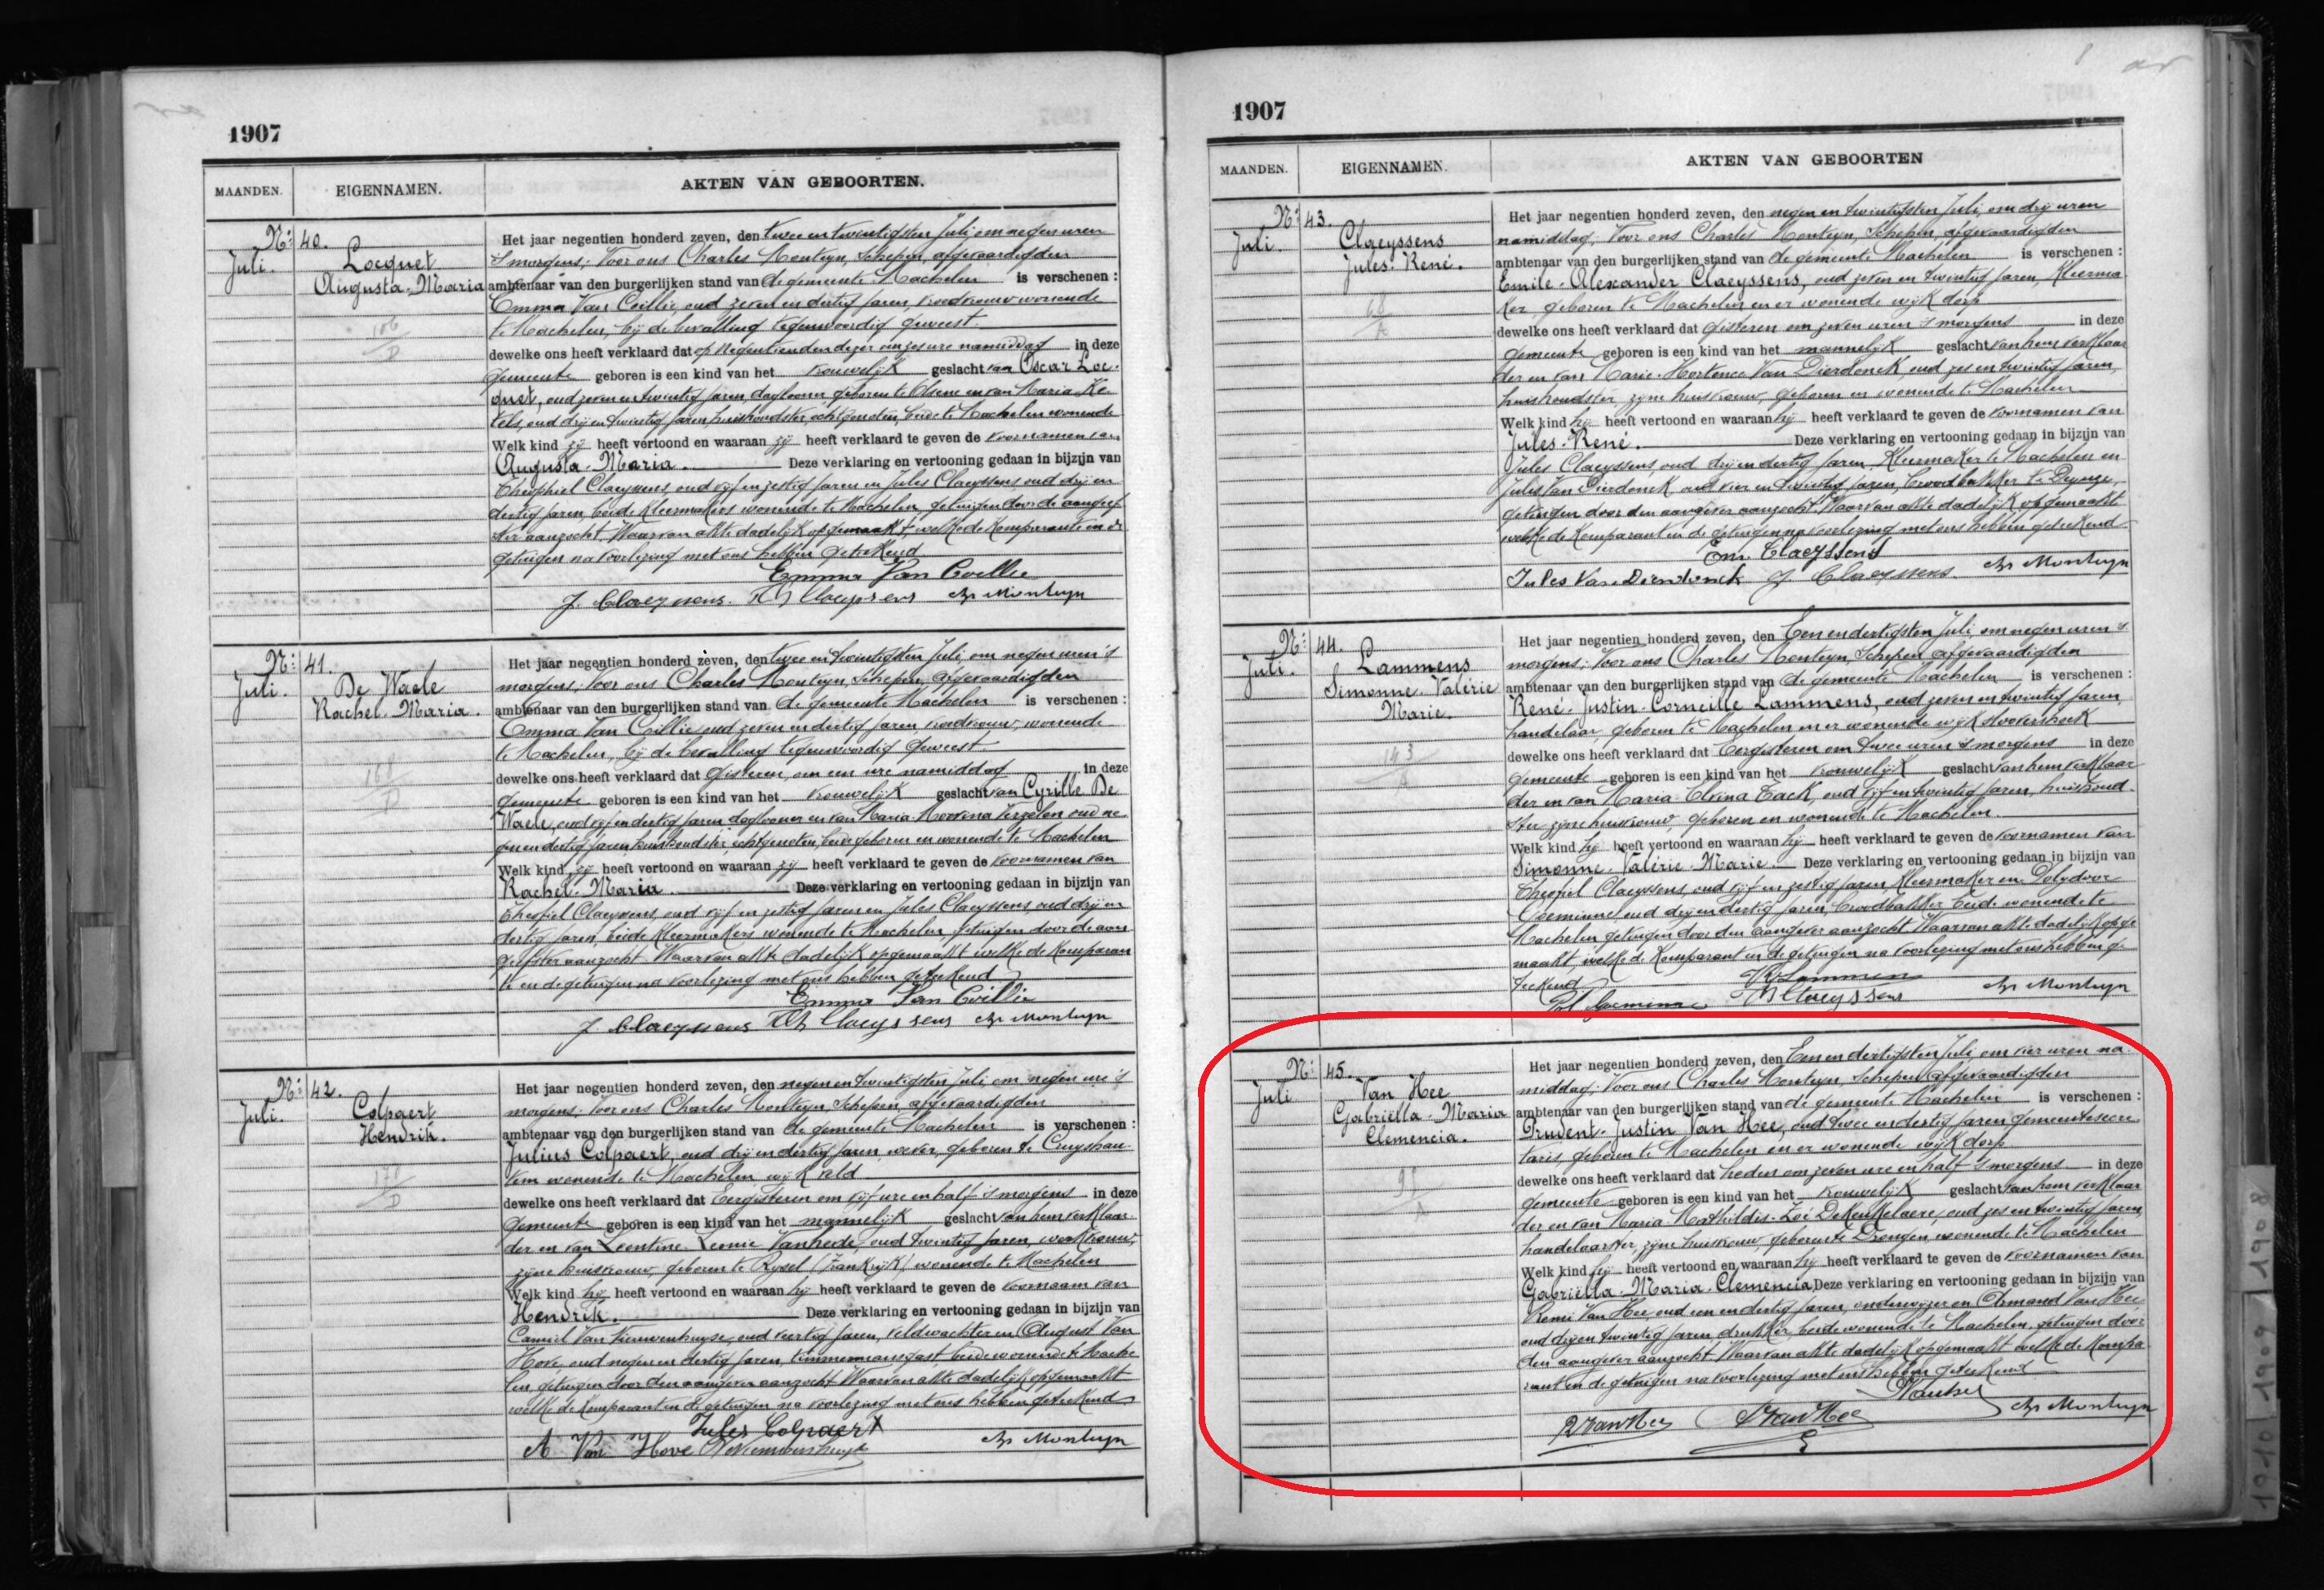 1907
MAANDEN.
EIGENNAMEN.
AKTEN VAN GEBOORTEN.
Nr 40.
Juli.
Locquet
Augusta-Maria
106
D
Het jaar negentien honderd zeven, den twee en twintigsten Juli om negen uren
'smorgens; Voor ons Charles Monteyn, Schepen, afgevaardigden
ambtenaar van den burgerlijken stand van de gemeente Machelen is verschenen :
Emma Van Coillie, oud zeven en dertig jaren, vroedvrouw wonende
te Machelen, bij de bevalling tegenwoordig geweest.
dewelke ons heeft verklaard dat op negentienden dezer om zes ure namiddag in deze
gemeente geboren is een kind van het vrouwelijk geslacht van Oscar Loc-
quet, oud zeven en twintig jaren, daglooner, geboren te Olsene en van Maria Ke-
tels, oud drij en twintig jaren, huishoudster, echtgenoten, beide te Machelen wonende
Welk kind zij heeft vertoond en waaraan zij heeft verklaard te geven de voornamen van
Augusta-Maria. Deze verklaring en vertooning gedaan in bijzijn van
Theophiel Claeyssens, oud vijf en zestig jaren en Jules Claeyssens oud drij en
dertig jaren, beide kleermakers wonende te Machelen, getuigen door de aangeef-
ster aanzocht. Waarvan akte dadelijk opgemaakt, welke de komparante en de
getuigen na voorlezing met ons hebben geteekend
Emma Van Coillie
J. Claeyssens. Th Claeyssens chs Monteyn
Nr 41.
Juli.
De Waele
Rachel-Maria.
168
D
Het jaar negentien honderd zeven, den twee en twintigsten Juli, om negen uren 's
morgens; Voor ons Charles Monteyn, Schepen, afgevaardigden
ambtenaar van den burgerlijken stand van de gemeente Machelen is verschenen :
Emma Van Coillie oud zeven en dertig jaren, vroedvrouw, wonende
te Machelen, bij de bevalling tegenwoordig geweest.
dewelke ons heeft verklaard dat gisteren, om een ure namiddag in deze
gemeente geboren is een kind van het vrouwelijk geslacht van Cyrille De
Waele, oud vijf en dertig jaren daglooner en van Maria Verzelen oud ne-
gen en dertig jaren, huishoudster, echtgenoten, beide geboren en wonende te Machelen
Welk kind zij heeft vertoond en waaraan zij heeft verklaard te geven de voornamen van
Rachel-Maria. Deze verklaring en vertooning gedaan in bijzijn van
Theofiel Claeyssens, oud vijf en zestig jaren en Jules Claeyssens, oud drij en
dertig jaren, beide kleermakers wonende te Machelen, getuigen door de aan-
geefster aanzocht. Waarvan akte dadelijk opgemaakt welke de komparan-
te en de getuigen na voorlezing met ons hebben geteekend
Emma Van Coillie
J. Claeyssens Th Claeyssens chs Monteyn
Nr 42.
Juli.
Colpaert
Hendrik.
170
D
Het jaar negentien honderd zeven, den negen en twintigsten Juli, om negen ure 's
morgens; Voor ons Charles Monteyn, Schepen, afgevaardigden
ambtenaar van den burgerlijken stand van de gemeente Machelen is verschenen :
Julius Colpaert, oud drij en dertig jaren, wever, geboren te Cruyshau-
tem wonende te Machelen wijk veld
dewelke ons heeft verklaard dat Eergisteren om vijf ure en half 's morgens in deze
gemeente geboren is een kind van het mannelijk geslacht van hem verklaar-
der en van Leontine Leonie Vanhede, oud twintig jaren, werkvrouw,
zijne huisvrouw, geboren te Rysel (Frankrijk) wonende te Machelen
Welk kind hij heeft vertoond en waaraan hij heeft verklaard te geven de voornaam van
Hendrik. Deze verklaring en vertooning gedaan in bijzijn van
Camiel Van Nieuwenhuyse, oud veertig jaren, veldwachter en August Van
Hove, oud negen en dertig jaren, timmermansgast, beide wonende te Mache-
len, getuigen door den aangever aanzocht. Waarvan akte dadelijk opgemaakt
welke de komparant en de getuigen na voorlezing met ons hebben geteekend
Jules Colpaert
A Van Hove chs Monteyn
1907
MAANDEN.
EIGENNAMEN.
AKTEN VAN GEBOORTEN
Nr 43.
Juli.
Claeyssens
Jules-René.
68
A
Het jaar negentien honderd zeven, den negen en twintigsten Juli, om drij uren
namiddag; Voor ons Charles Monteyn, Schepen, afgevaardigden
ambtenaar van den burgerlijken stand van de gemeente Machelen is verschenen :
Emile-Alexander Claeyssens, oud zeven en twintig jaren, kleerma-
ker, geboren te Machelen en er wonende wijk dorp
dewelke ons heeft verklaard dat gisteren om zeven uren 's morgens in deze
gemeente geboren is een kind van het mannelijk geslacht van hem verklaar-
der en van Marie-Hortence Van Dierdonck, oud zes en twintig jaren,
huishoudster, zijne huisvrouw, geboren en wonende te Machelen
Welk kind hij heeft vertoond en waaraan hij heeft verklaard te geven de voornamen van
Jules-René. Deze verklaring en vertooning gedaan in bijzijn van
Jules Claeyssens oud drij en dertig jaren, kleermaker te Machelen en
Jules Van Dierdonck oud vier en twintig jaren, broodbakker te Deynze,
getuigen door den aangever aanzocht. Waarvan akte dadelijk opgemaakt
welke de komparant en de getuigen na voorlezing met ons hebben geteekend
Em. Claeyssens
Jules Van Dierdonck J Claeyssens. chs Monteyn
Nr 44.
Juli.
Lammens
Simonne-Valérie
Marie.
143
A
Het jaar negentien honderd zeven, den Een en dertigsten Juli, om negen uren 's
morgens; Voor ons Charles Monteyn, Schepen afgevaardigden
ambtenaar van den burgerlijken stand van de gemeente Machelen is verschenen :
René-Justin-Corneille Lammens, oud zeven en twintig jaren,
handelaar, geboren te Machelen en er wonende wijk
dewelke ons heeft verklaard dat Eergisteren om twee uren 's morgens in deze
gemeente geboren is een kind van het vrouwelijk geslacht van hem verklaar-
der en van Maria-Elvina Tack, oud vijf en twintig jaren, huishoud-
ster zijne huisvrouw, geboren en wonende te Machelen.
Welk kind hij heeft vertoond en waaraan hij heeft verklaard te geven de voornamen van
Simonne-Valérie-Marie. Deze verklaring en vertooning gedaan in bijzijn van
Theofiel Claeyssens, oud vijf en zestig jaren kleermaker en Polydoor
Goeminne, oud drij en dertig jaren, broodbakker, beide wonende te
Machelen getuigen door den aangever aanzocht. Waarvan akte dadelijk opge-
maakt, welke de komparant en de getuigen na voorlezing met ons hebben ge-
teekend
R Lammens
Pol Goeminne Th Claeyssens chs Monteyn
Nr 45.
Juli
Van Hee
Gabriella-Maria
Clemencia.
A
Het jaar negentien honderd zeven, den Een en dertigsten Juli, om vier uren na-
middag; Voor ons Charles Monteyn, Schepen afgevaardigden
ambtenaar van den burgerlijken stand van de gemeente Machelen is verschenen :
Prudent-Justin Van Hee, oud twee en dertig jaren gemeentesecre-
taris, geboren te Machelen en er wonende wijk dorp
dewelke ons heeft verklaard dat heden om zeven ure en half 's morgens in deze
gemeente geboren is een kind van het vrouwelijk geslacht van hem verklaar-
der en van Maria-Mathildis-Zoé DeKeukelaere, oud zes en twintig jaren,
handelaarster, zijne huisvrouw, geboren te Drongen, wonende te Machelen
Welk kind hij heeft vertoond en waaraan hij heeft verklaard te geven de voornamen van
Gabriella-Maria-Clemencia Deze verklaring en vertooning gedaan in bijzijn van
Remi Van Hee, oud een en dertig jaren, onderwijzer en Armand Van Hee,
oud drij en twintig jaren, drukker, beide wonende te Machelen, getuigen door
den aangever aanzocht. Waarvan akte dadelijk opgemaakt welke de kompa-
rant en de getuigen na voorlezing met ons hebben geteekend
Vanhee
R VanHee VanHee chs Monteyn
1910 1909 1908